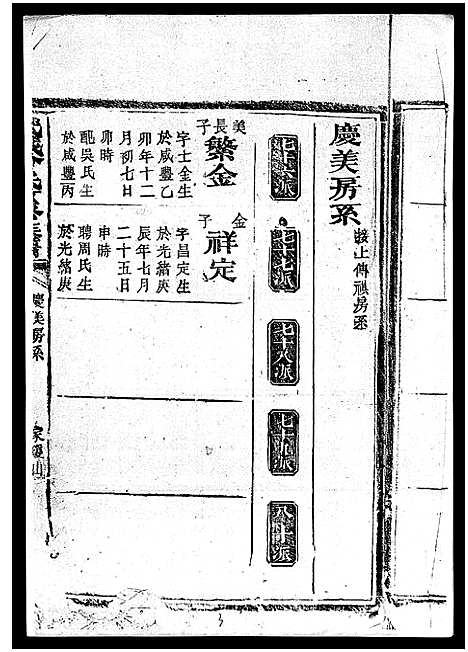 慶美房系
接上傳祺房系
七十六派
七十七派
七十八派
七十九派
八十派
美長子
繁金
字士金生
於咸豐乙
卯年十二
月初七日
卯時
配吳氏生
於咸豐丙
金子
祥定
字昌定生
於光緒庚
辰年七月
二十五日
申時
聘周氏生
於光緒庚
慶美房系